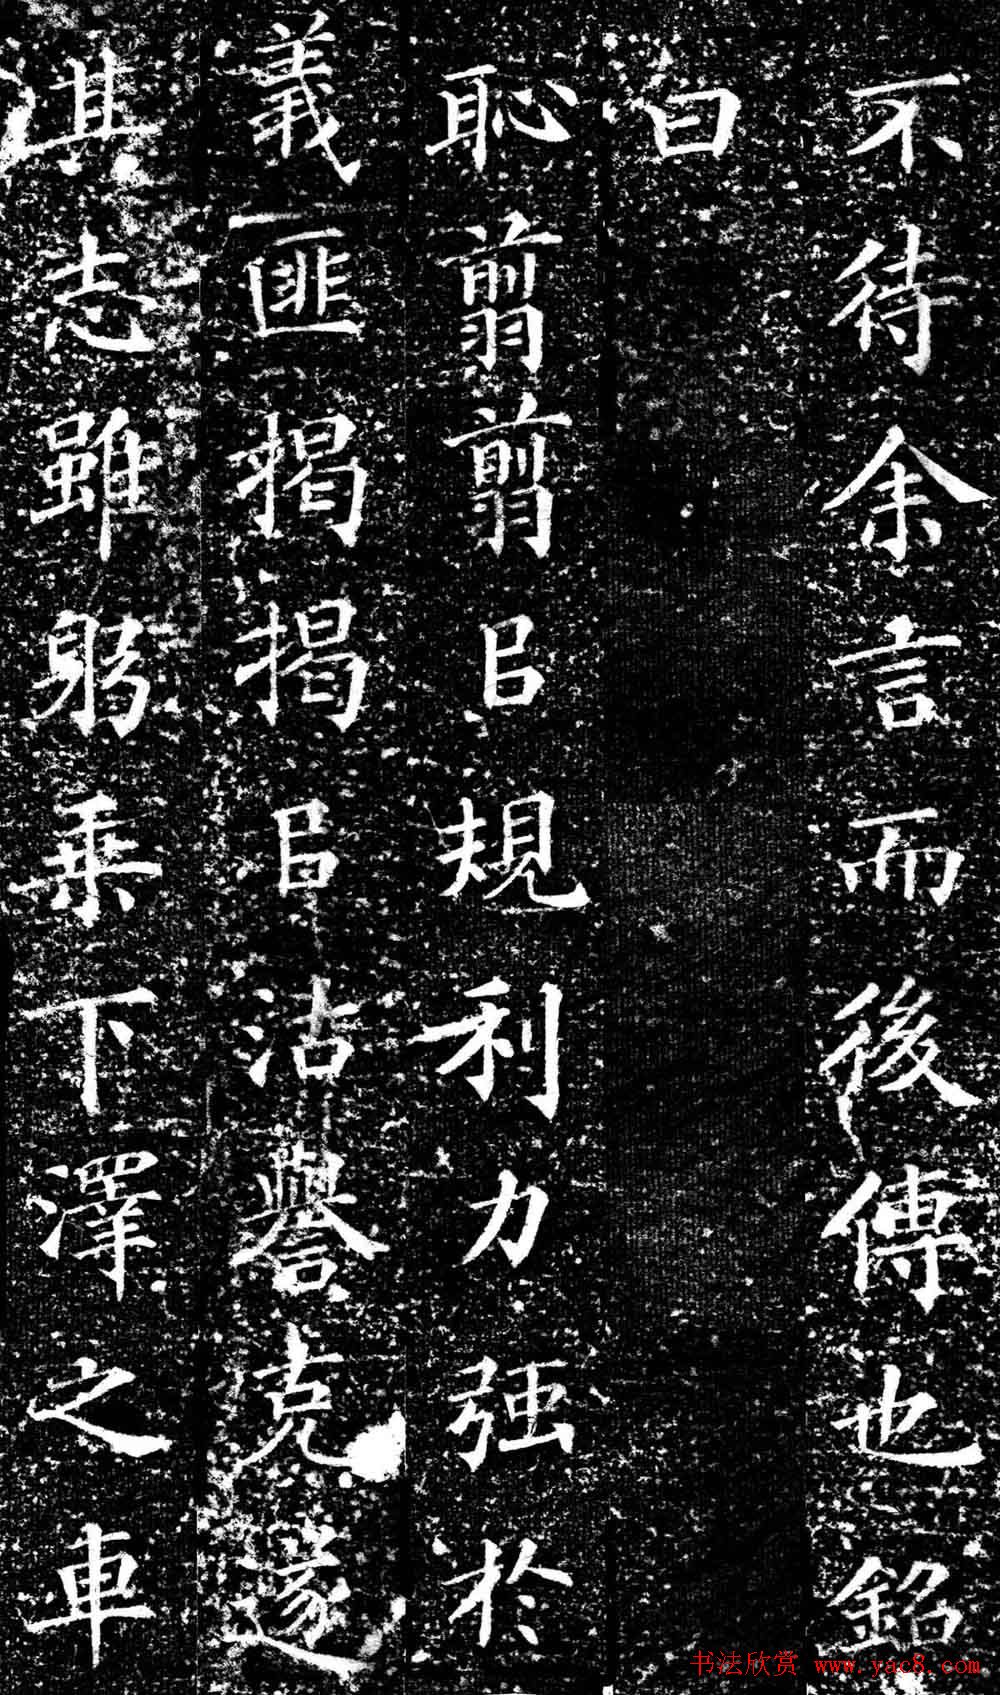 不待余言而後傳也銘
曰
恥翦翦㠯規利力强於
義匪揭揭㠯沽譽克遂
其志雖躬乗下澤之車
书法欣赏 www.yac8.com